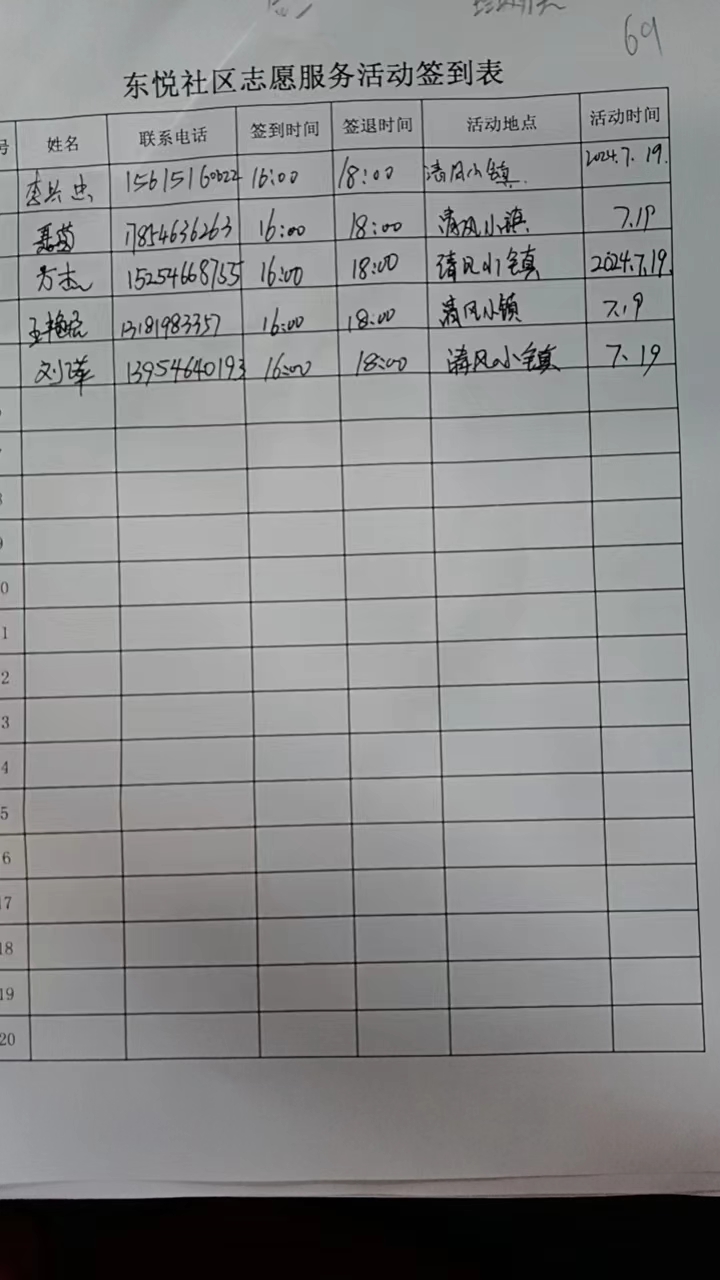 69
东悦社区志愿服务活动签到表
号 姓名 联系电话 签到时间 签退时间 活动地点 活动时间
李兴忠 15615160622 16:00 18:00 清风小镇 2024.7.19.
聂茵 17854636263 16:00 18:00 清风小镇 7.19
方杰 15254668755 16:00 18:00 清风小镇 2024.7.19.
王艳 13181983357 16:00 18:00 清风小镇 7.19
刘萍 13954640193 16:00 18:00 清风小镇 7.19
8
9
0
1
2
3
4
5
6
17
18
19
20